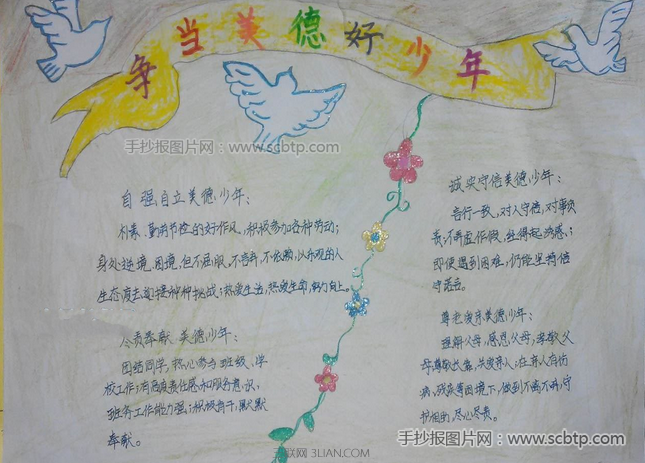 争当美德好少年
手抄报图片网：www.scbtp.com
自强自立美德少年：
朴素、勤俭节俭的好作风，积极参加各种劳动；
身处逆境、困境，但不屈服、不言弃、不依赖，以乐观的人
生态度去迎接种种挑战；热爱生活，热爱生命，努力向上。
尽责奉献美德少年：
团结同学，热心参与班级、学
校工作；有高度责任感和服务意识，
班务工作能力强；积极肯干，默默
奉献。
诚实守信美德少年：
言行一致，对人守信，对事负
责；不弄虚作假，经得起诱惑；
即使遇到困难，仍能坚持信
守诺言。
尊老爱亲美德少年：
理解父母，感恩父母，孝敬父
母尊敬长辈，关爱亲人；在亲人有伤
病、残疾等困境下，做到不离不弃，守
护相助，尽心尽责。
手抄报图片网：www.scbtp.com
三联网 3LIAN.COM